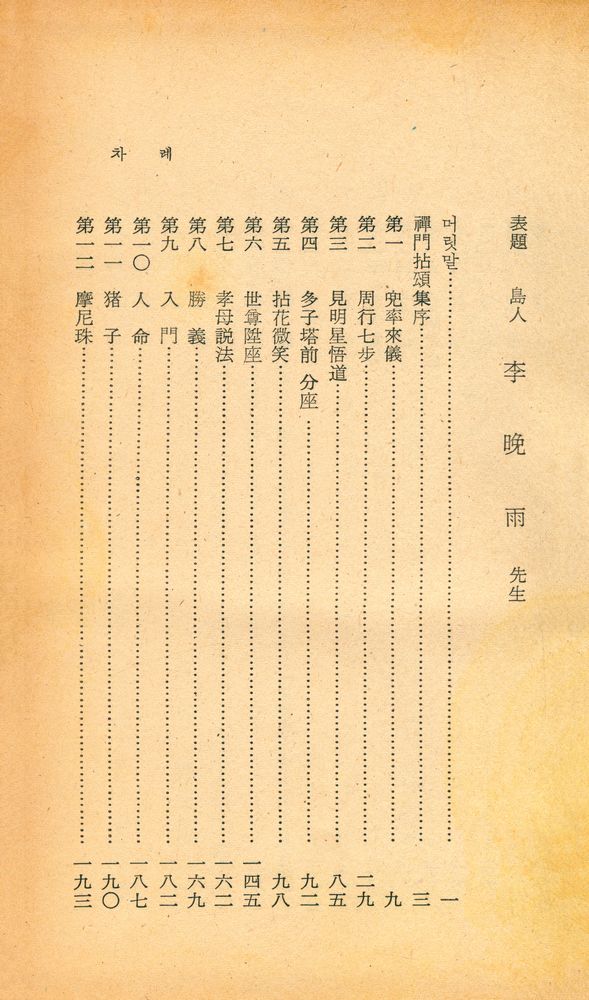 表題 島人 李晚雨 先生
차례
머릿말……………一
禪門拈頌集序……………三
第一 兜率來儀……………九
第二 周行七步……………二九
第三 見明星悟道……………八五
第四 多子塔前 分座……………九二
第五 拈花微笑……………九八
第六 世尊陞座……………一四五
第七 孝母說法……………一六二
第八 勝義……………一六九
第九 入門……………一八二
第一〇 人命……………一八七
第一一 猪子……………一九〇
第一二 摩尼珠……………一九三